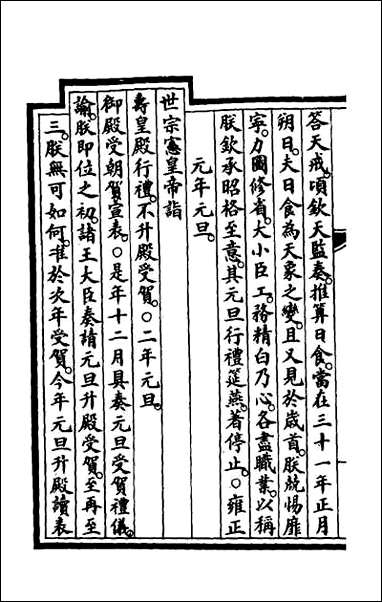 答天戒。頃欽天監奏。推算日食。當在三十一年正月
朔日。夫日食為天象之變。且又見於歲首。朕兢惕靡
寧。力圖修省。大小臣工。務精白乃心。各盡職業。以稱
朕欽承昭格至意。其元旦行禮筵燕。著停止。○雍正
元年元旦。
世宗憲皇帝詣
壽皇殿行禮。不升殿受賀。○二年元旦。
御殿受朝賀。宣表。○是年十二月。具奏元旦受賀禮儀。
諭。朕即位之初。諸王大臣奏請元旦升殿受賀。至再至
三。朕無可如何。准於次年受賀。今年元旦升殿讀表